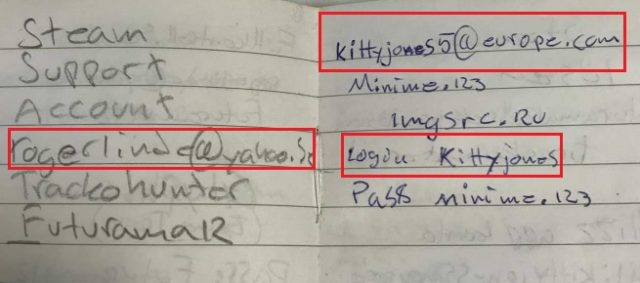 Steam
Support
Account
rogerlind@yahoo.se
Trackohunter
Futurama12
Kittyjones5@europe.com
Minime.123
imgsrc.Ru
Login Kittyjones
Pass minime.123